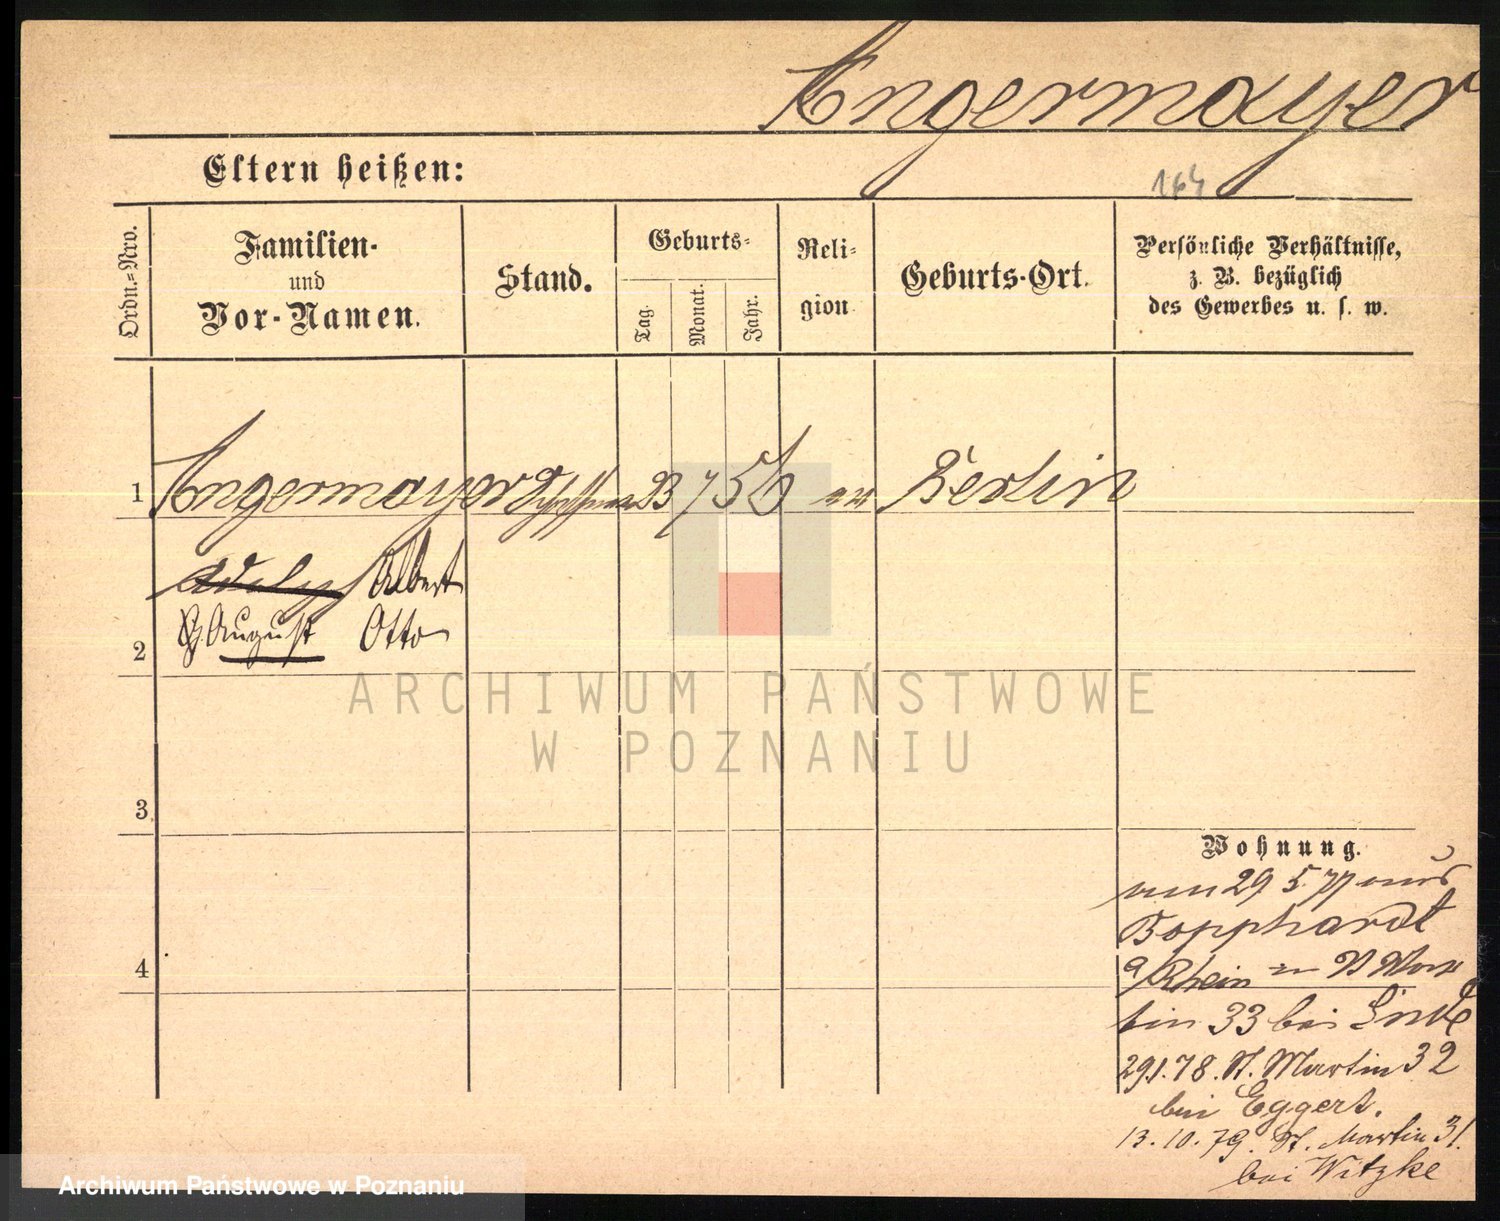 Angermayer
Eltern heißen:
164
Ordn.=Nro.
Familien-
und
Vor-Namen.
Stand.
Geburts=
Tag.
Monat.
Jahr.
Reli=
gion
Geburts-Ort.
Persönliche Verhältnisse,
z. B. bezüglich
des Gewerbes u. s. w.
1 Angermayer 23 7 56 ev Berlin
Adolph Albert
August Otto
2
ARCHIWUM PAŃSTWOWE
W POZNANIU
3
Wohnung.
29 5 77 aus
Bopphardt
a/Rhein in St Mar
tin 33 bei
4
29.1.78. St. Martin 32
bei Eggert.
13.10.79. St. Martin 31
bei Witzke
Archiwum Państwowe w Poznaniu